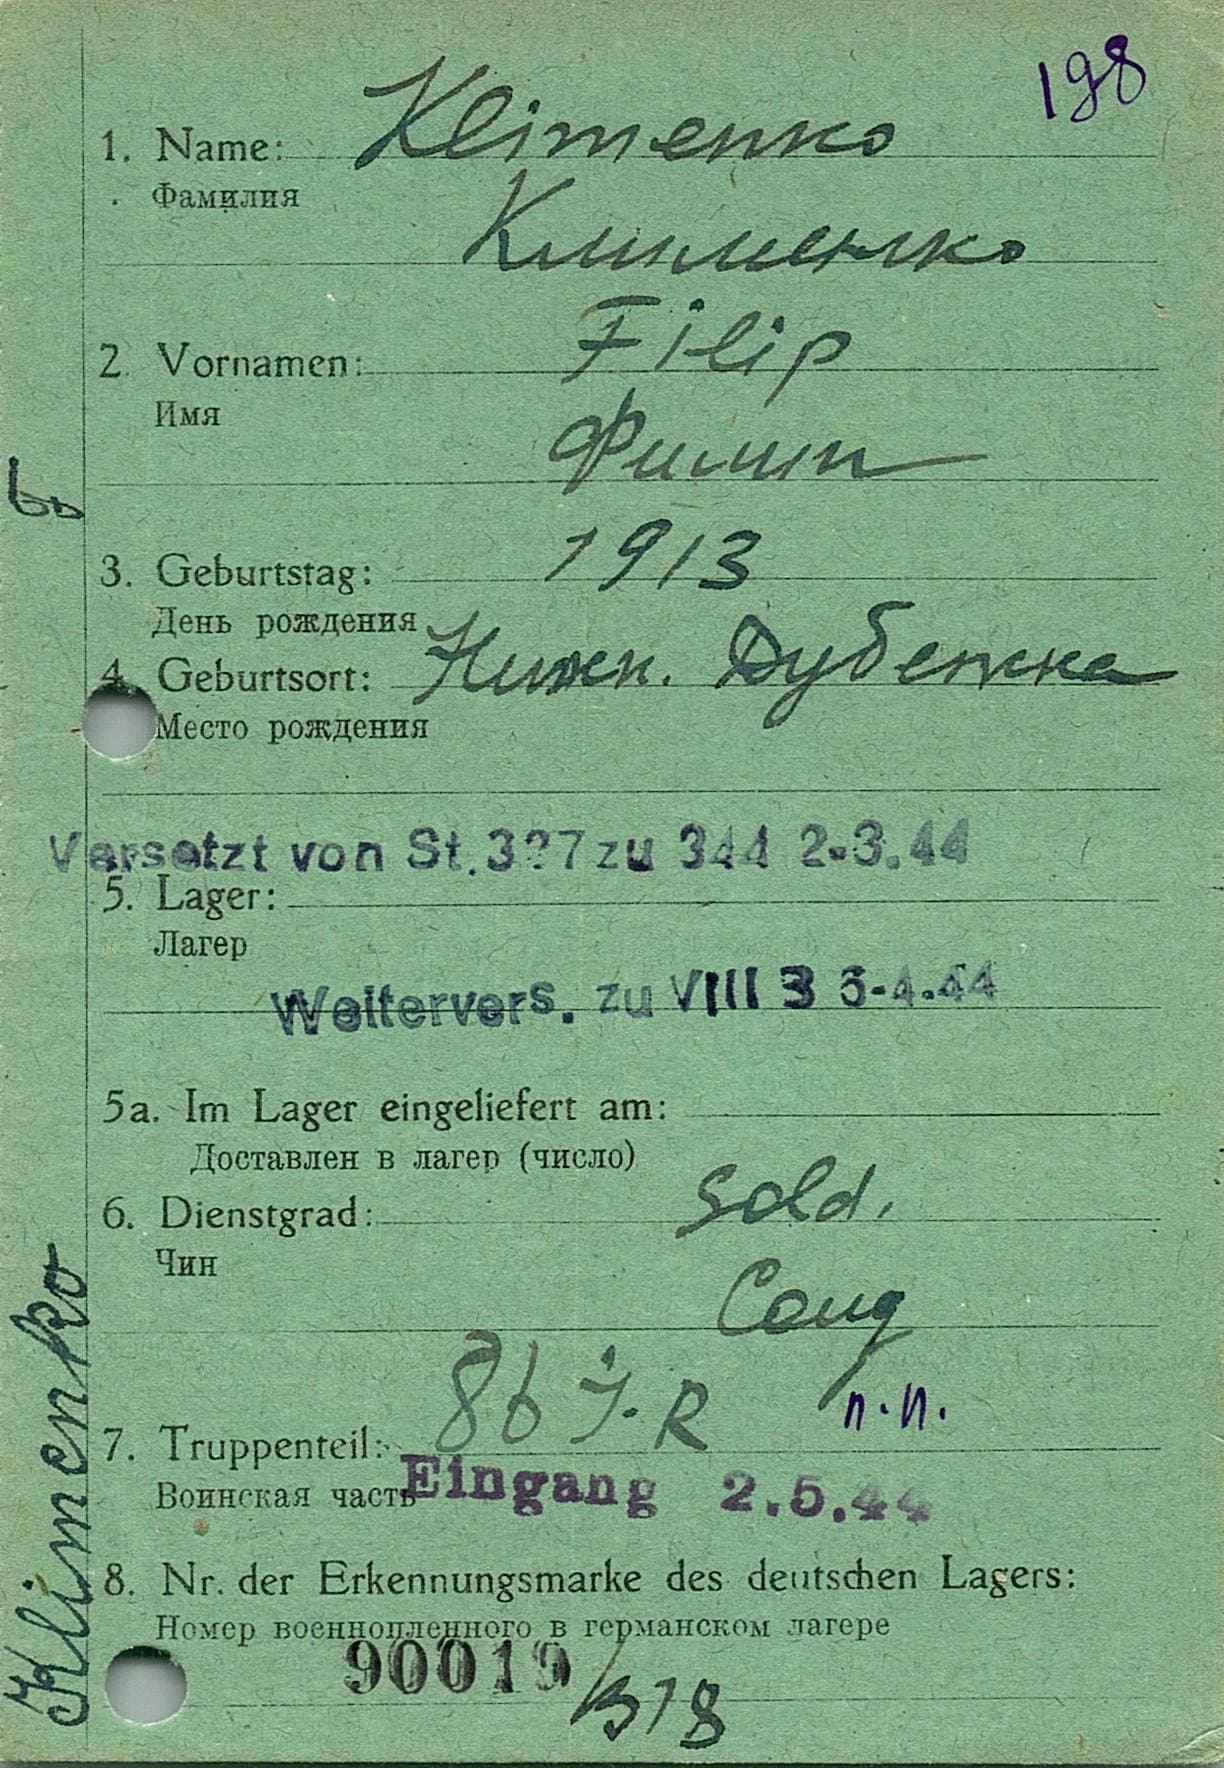 198
1. Name: Klimenko
Фамилия
Клименко
2 Vornamen: Filip
Имя
Филип
3. Geburtstag: 1913
День рождения
4. Geburtsort: Нижн. Дубенка
Место рождения
Versetzt von St. 3?7 zu 344 2-3.44
5. Lager:
Лагер
Weitervers. zu VIII 3 5-4.44
5a. Im Lager eingeliefert am:
Доставлен в лагер (число)
6. Dienstgrad: Sold.
Чин
Солд
7. Truppenteil: 86 J.R п.п.
Воинская часть
Eingang 2.5.44
8. Nr. der Erkennungsmarke des deutschen Lagers:
Номер военнопленного в германском лагере
90019/318
Klimenko